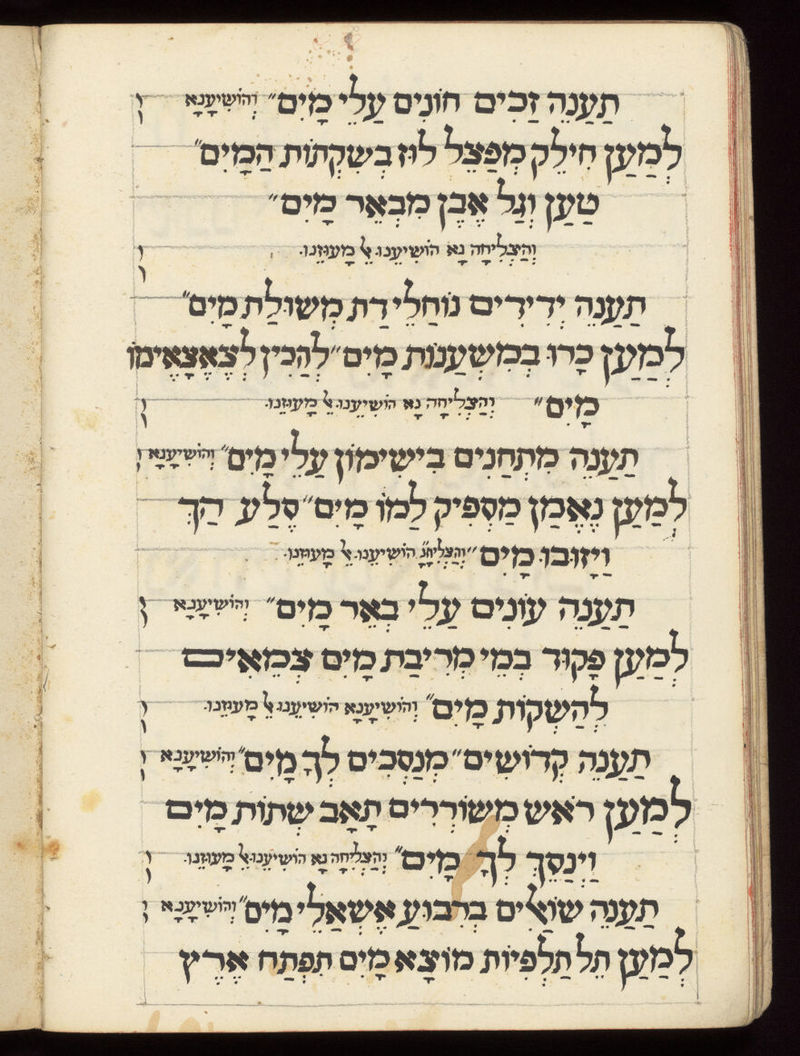 תַעֲנֶה זַכִּים חוֹנִים עֲלֵי מָיִם״ וְהוֹשִׁיעָנָא
לְמַעַן חִילֵק מְפַצֵל לוּז בְּשִׁקְתוֹת הַמָיִם״
טָעַן וְגַל אֶבֶן מִבְּאֵר מָיִם״
וְהַצְלִיחָה נָא הוֹשִׁיעֵנוּ אֵל מָעוּזֵנוּ.
תַעֲנֶה יְדִידִים נוֹחֲלֵי דַת מְשׁוּלַת מָיִם״
לְמַעַן כָּרוּ בְּמִשְׁעֲנוֹת מָיִם״ לְהָכִין לְצֶאֱצָאֵימוֹ
מָיִם״ וְהַצְלִיחָה נָא הוֹשִׁיעֵנוּ אֵל מָעוּזֵנוּ.
תַעֲנֶה מִתְחַנְנִים בִּישִׁימוֹן עֲלֵי מָיִם״ וְהוֹשִׁיעָנָא
לְמַעַן נֶאֱמַן מַסְפִּיק לָמוֹ מָיִם״ סֶלַע הָךְ
וַיָזוּבוּ מָיִם״ וְהַצְלִיחָ נָ הוֹשִׁיעֵנוּ אֵל מָעוּזֵנוּ.
תַעֲנֶה עוֹנִים עֲלֵי בְּאֵר מָיִם״ וְהוֹשִׁיעָנָא
לְמַעַן פָּקוּד בְּמֵי מְרִיבַת מָיִם צְמֵאִים
לְהַשְׁקוֹת מָיִם״ וְהוֹשִׁיעָנָא הוֹשִׁיעֵנוּ אֵל מָעוּזֵנוּ.
תַעֲנֶה קְדוֹשִׁים״ מְנַסְכִים לְךָ מָיִם״ וְהוֹשִׁיעָנָא
לְמַעַן רֹאשׁ מְשׁוֹרְרִים תָאַב שְׁתוֹת מָיִם
וַיְנַסֵךְ לְךָ מָיִם״ וְהַצְלִיחָה נָא הוֹשִׁיעֵנוּ אֵל מָעוּזֵנוּ.
תַעֲנֶה שׁוֹאֲלִים בְּרִבּוּעַ אֶשְׁאֲלֵי מָיִם״ וְהוֹשִׁיעָנָא
לְמַעַן תֵל תַלְפִּיוֹת מוֹצָא מָיִם תִפְתַח אֶרֶץ